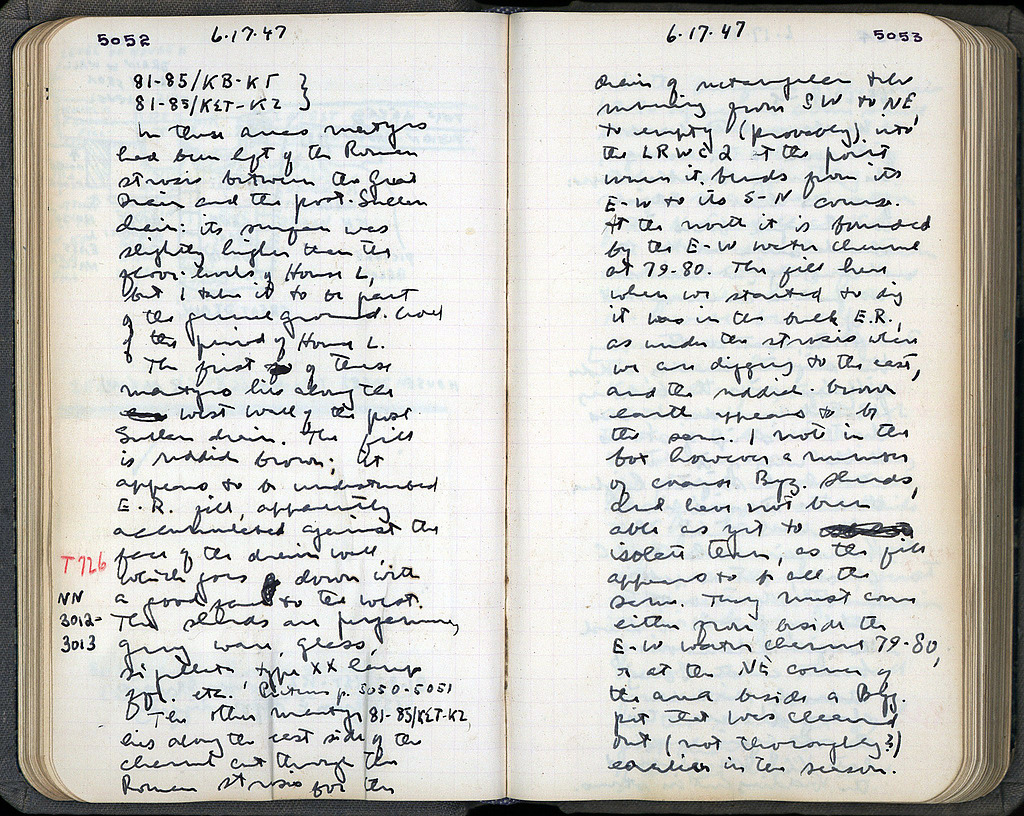 5052
6.17.47
81-85/ΚΒ-ΚΓ }
81-85/ΚΣΤ-ΚΖ }
In these areas martyrs
had been left of the Roman
strosis between the Great
Drain and the post-Sullan
drain: its surface was
slightly higher than the
floor levels of House L,
but I take it to be part
of the general ground level
of the period of House L.
The first of these
martyrs lies along the
west wall of the post
Sullan drain. The fill
is reddish brown; it
appears to be undisturbed
E.R. fill, apparently
accumulated against the
face of the drain wall,
which goes down with
a good face to the west.
The sherds are
grey ware, glass,
type XX lamp
etc. Pictures p. 5050-5051
The other martyr 81-85/ΚΣΤ-ΚΖ,
lies along the east side of the
channel cut through the
Roman strosis for the
T 726
NN
3012-
3013
6.17.47
5053
drain of rectangular tiles
running from SW to NE,
to empty (probably) into
the LRWC 2 at the point
where it bends from its
E-W to its S-N course.
At the north it is bounded
by the E-W water channel
at 79-80. The fill here
when we started to dig
it was in the bulk E.R.,
as under the strosis where
we are digging to the east,
and the reddish brown
earth appears to be
the same. I note in the
box however a number
of coarse Byz. sherds,
and have not been
able as yet to
isolate them, as the fill
appears to be all the
same. They must come
either from beside the
E-W water channel 79-80,
or at the NE corner of
the area beside a Byz.
pit that was cleared
out (not thoroughly?)
earlier in the season.